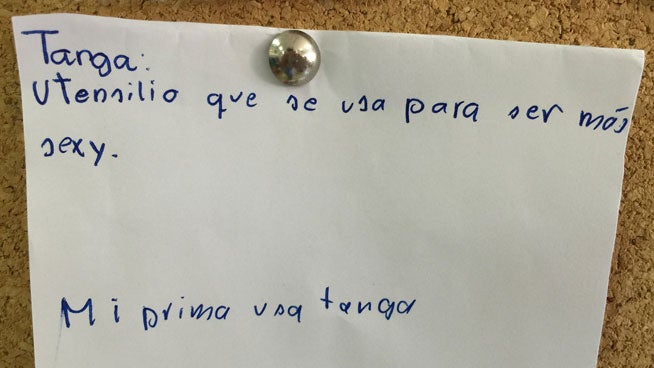 Tanga:
Utensilio que se usa para ser más
sexy.
Mi prima usa tanga